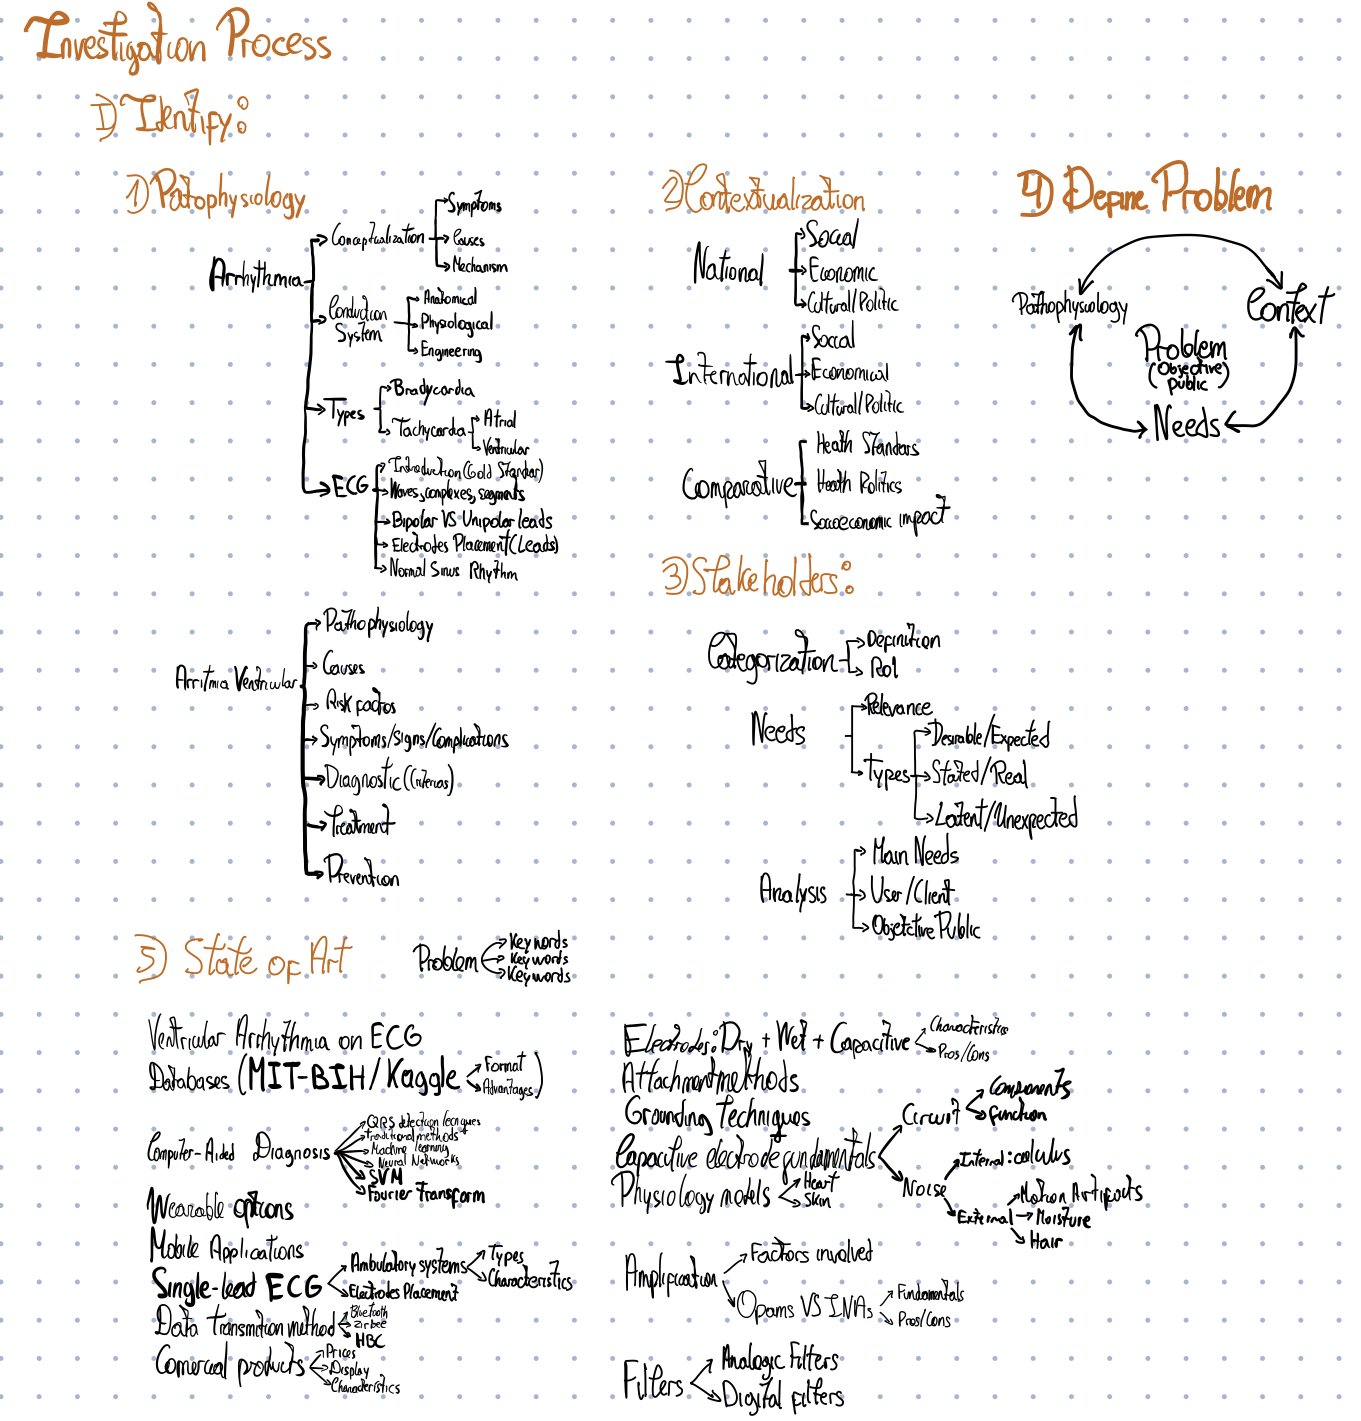 Investigation Process
I) Identify:
1) Patophysiology
Arrhythmia
Conceptualization
Symptoms
Causes
Mechanism
Conduction System
Anatomical
Physiological
Engineering
Types
Bradycardia
Tachycardia
Atrial
Ventricular
ECG
Introduction (Gold Standar)
Waves, complexes, segments
Bipolar VS Unipolar leads
Electrodes Placement (Leads)
Normal Sinus Rhythm
Arritmia Ventricular
Pathophysiology
Causes
Risk factos
Symptoms/Signs/Complications
Diagnostic (Criterias)
Treatment
Prevention
2) Contextualization
National
Social
Economic
Cultural/Politic
International
Social
Economical
Cultural/Politic
Comparative
Health Standars
Health Politics
Socioeconomic impact
3) Stakeholders:
Categorization
Definition
Rol
Needs
Relevance
Types
Desirable/Expected
Stated/Real
Latent/Unexpected
Analysis
Main Needs
User/Client
Objetctive Public
4) Define Problem
Pathophysiology
Context
Problem
(Objective Public)
Needs
5) State of Art
Problem
Key words
Key words
Key words
Ventricular Arrhythmia on ECG
Databases (MIT-BIH/Kaggle
Format
Advantages)
Computer-Aided Diagnosis
QRS detection tecniques
Traditional methods
Machine learning
Neural Networks
SVM
Fourier Transform
Wearable options
Mobile Applications
Single-lead ECG
Ambulatory systems
Types
Characteristics
Electrodes Placement
Data transmition method
Bluetooth
HBC
Comercial products
Prices
Display
Characteristics
Electrodes: Dry + Wet + Capacitive
Characteristics
Pros/Cons
Attachment methods
Grounding Techniques
Capacitive electrode fundamentals
Circuit
Components
Function
Noise
Internal: calculus
External
Motion Artifacts
Moisture
Hair
Physiology models
Heart
Skin
Amplification
Factors involved
Opams VS INAs
Fundamentals
Pros/Cons
Filters
Analogic Filters
Digital filters